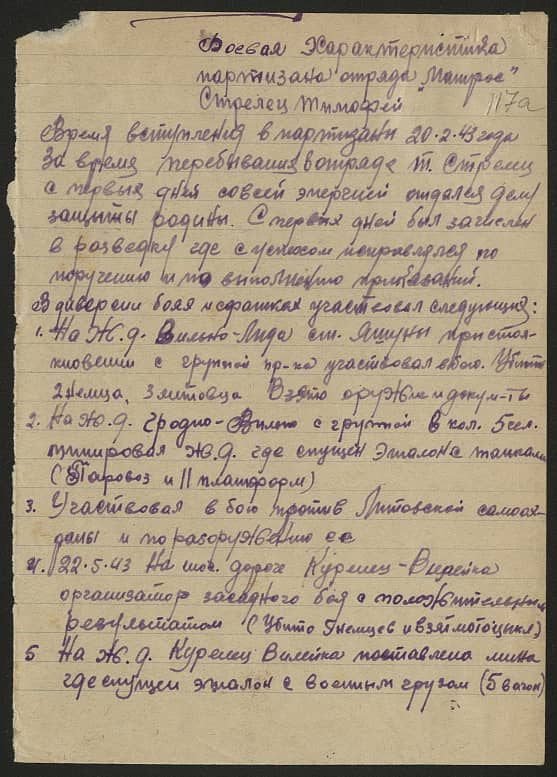 Боевая Характеристика
партизана отряда "Матрос"
Стрелец Тимофей 117а
Время вступления в партизаны 20.2.43 года
За время перебывания в отряде т. Стрелец
с первых дней со всей энергией отдался делу
защиты родины. С первых дней был зачислен
в разведку где с успехом исправлялся по
поручению и по выполнению
В диверсии боях и сражениях участвовал следующих:
1. На Ж.Д. Вильно-Лида ст. Яшуны при столк-
кновении с группой пр-ка участвовал в бою. Убито
2 немца, 3 литовца Взято оружие и докум-ты
2. На Ж.Д. Гродно-Вильно с группой в кол. 5 чел.
минировал Ж.Д. где спущен эшалон с танками
(Паровоз и 11 платформ)
3. Участвовал в бою против Литовской самоах-
раны и по разоружению ее
4. 22.5.43 На шос. дороге Куренец-Вилейка
организатор засадного боя с положительным
результатом (Убито 7 немцев и взят мотоцикл)
5 На Ж.Д. Куренец Вилейка поставлена мина
где спущен эшалон с военным грузом (5 вагон)